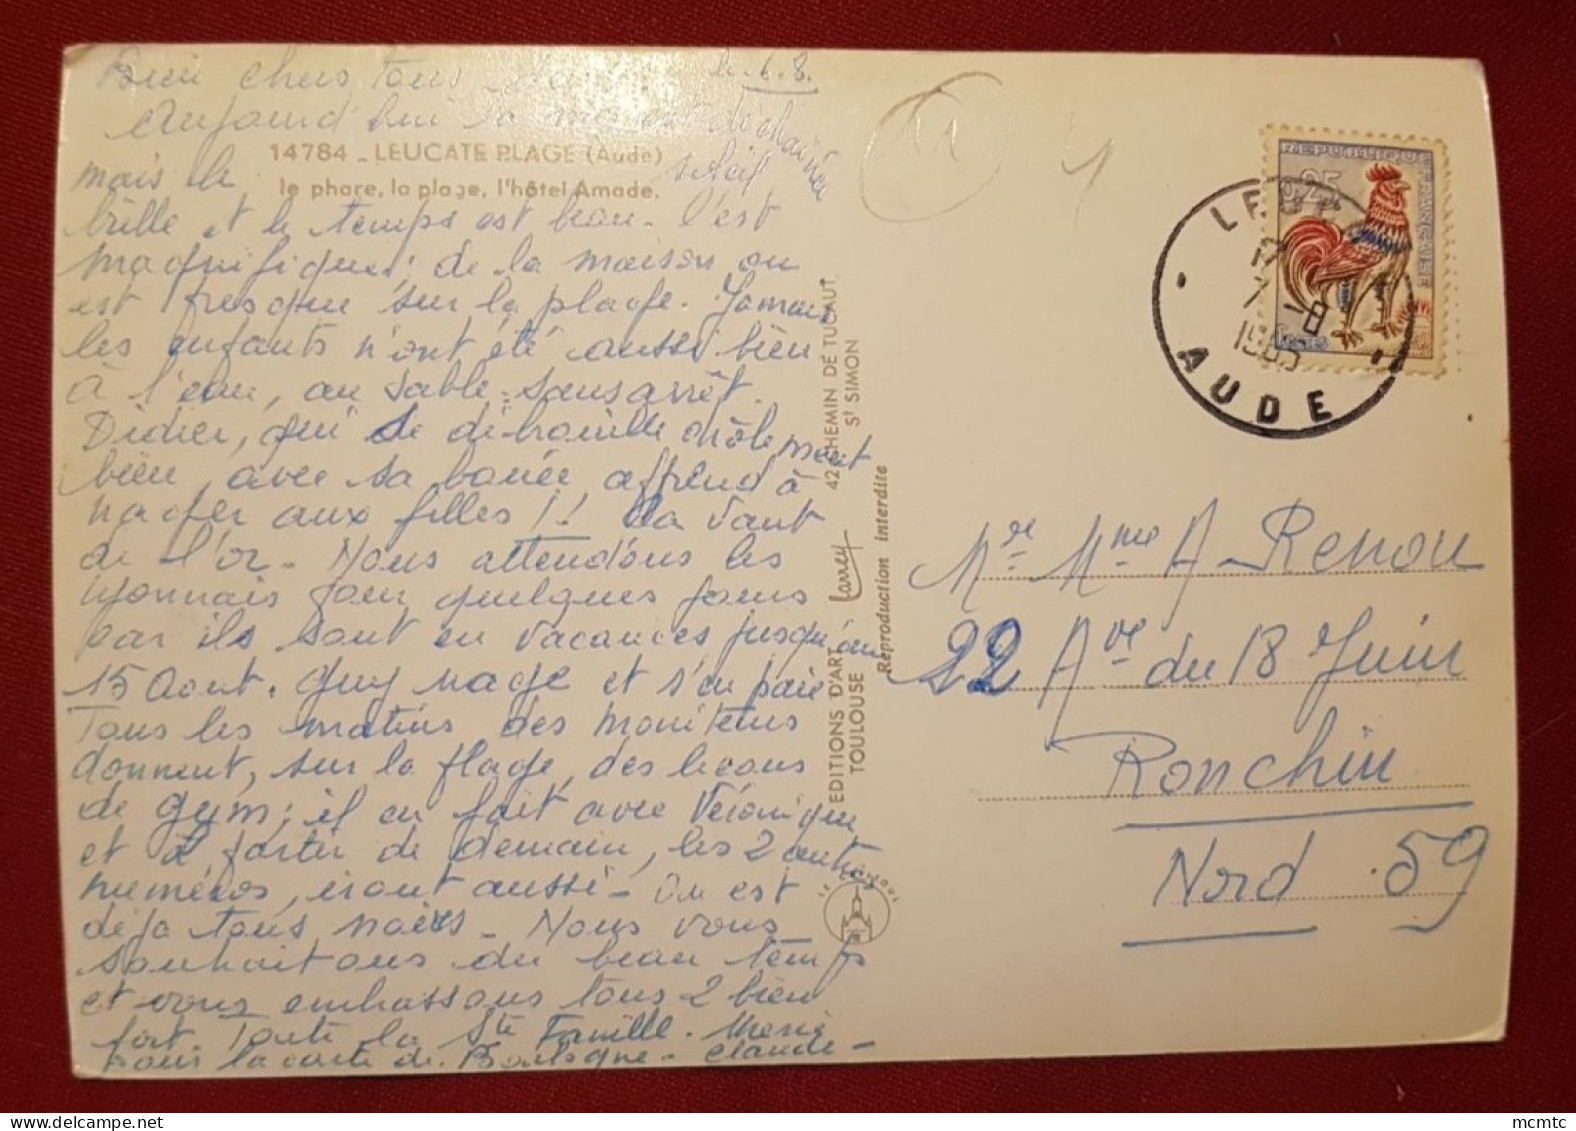 Bien chers tous le 6.8.
Aujourd'hui la mer est déchaînée
mais le soleil
14784 - LEUCATE PLAGE (Aude)
le phare, la plage, l'hôtel Amade.
brille et le temps est beau. C'est
magnifique; de la maison on
est presque sur la plage. Jamais
les enfants n'ont été aussi bien
à l'eau, au sable sans arrêt.
Didier, qui se débrouille drôlement
bien, avec sa bouée apprend à
nager aux filles!! Ça vaut
de l'or. Nous attendons les
lyonnais pour quelques jours
car ils sont en vacances jusqu'au
15 Aout. Guy nage et s'en paie
Tous les matins des moniteurs
donnent, sur la plage, des leçons
de gym; il en fait avec Véronique
et à partir de demain, les 2 autres
numéros, iront aussi - On est
déjà tous noirs - Nous vous
souhaitons du beau temps
et vous embrassons tous 2 bien
fort. Toute la Ste Famille. Merci
pour la carte de Boulogne - Claude -
EDITIONS D'ART Larrey 42 CHEMIN DE TUCAUT
TOULOUSE St SIMON
Reproduction interdite
11
4
0,25
REPUBLIQUE FRANÇAISE
17
7 -8
AUDE
Mr Mme A Renou
22 Ave du 18 Juin
Ronchin
Nord 59
mcmtc